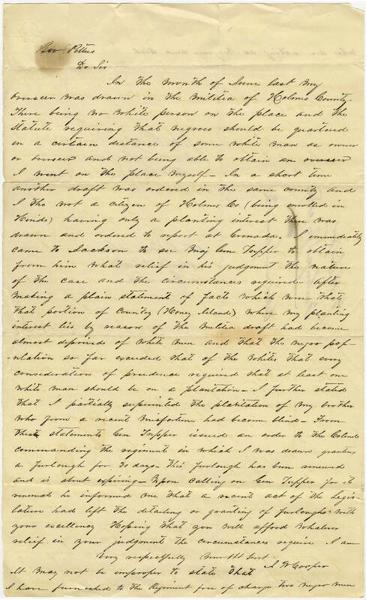 Gov Pettus
Dr Sir
In the month of June last my
overseer was drawn in the militia of Holmes County
There being no white person on the place and the
statute requiring that negroes should be quartered
in a certain distance of some white man as owner
or overseer and not being able to obtain an overseer
I went on the place myself - In a short time
another draft was ordered in the same county and
I tho not a citizen of Holmes Co (being enrolled in
Hinds) having only a planting interest there was
drawn and ordered to report at Grenada. I immediately
came to Jackson to see Maj Gen Tupper to obtain
from him what relief in his judgment the nature
of the case and the circumstances required. After
making a plain statement of facts which were that
that portion of Country (Honey Island) where my planting
interest lies by reason of the militia draft had become
almost deprived of white men and that the negro pop-
ulation so far exceeded that of the whites that every
consideration of prudence required that at least one
white man should be on a plantation - I further stated
that I partially superintend the plantation of my brother
who from a recent misfortune had become blind - From
these statements Gen Tupper issued an order to the Colonel
commanding the regiment in which I was drawn granting
a furlough for 30 days. This furlough has been renewed
and is about expiring - Upon calling on Gen Tupper for its
renewal he informed me that a recent act of the legis-
lature had left the detailing or granting of furloughs with
your excellency Hoping that you will afford whatever
relief in your judgment the circumstances require I am
very respectfully your Obt Servt
A W Cooper
It may not be improper to state that
I have furnished to the Regiment free of charge two negro men